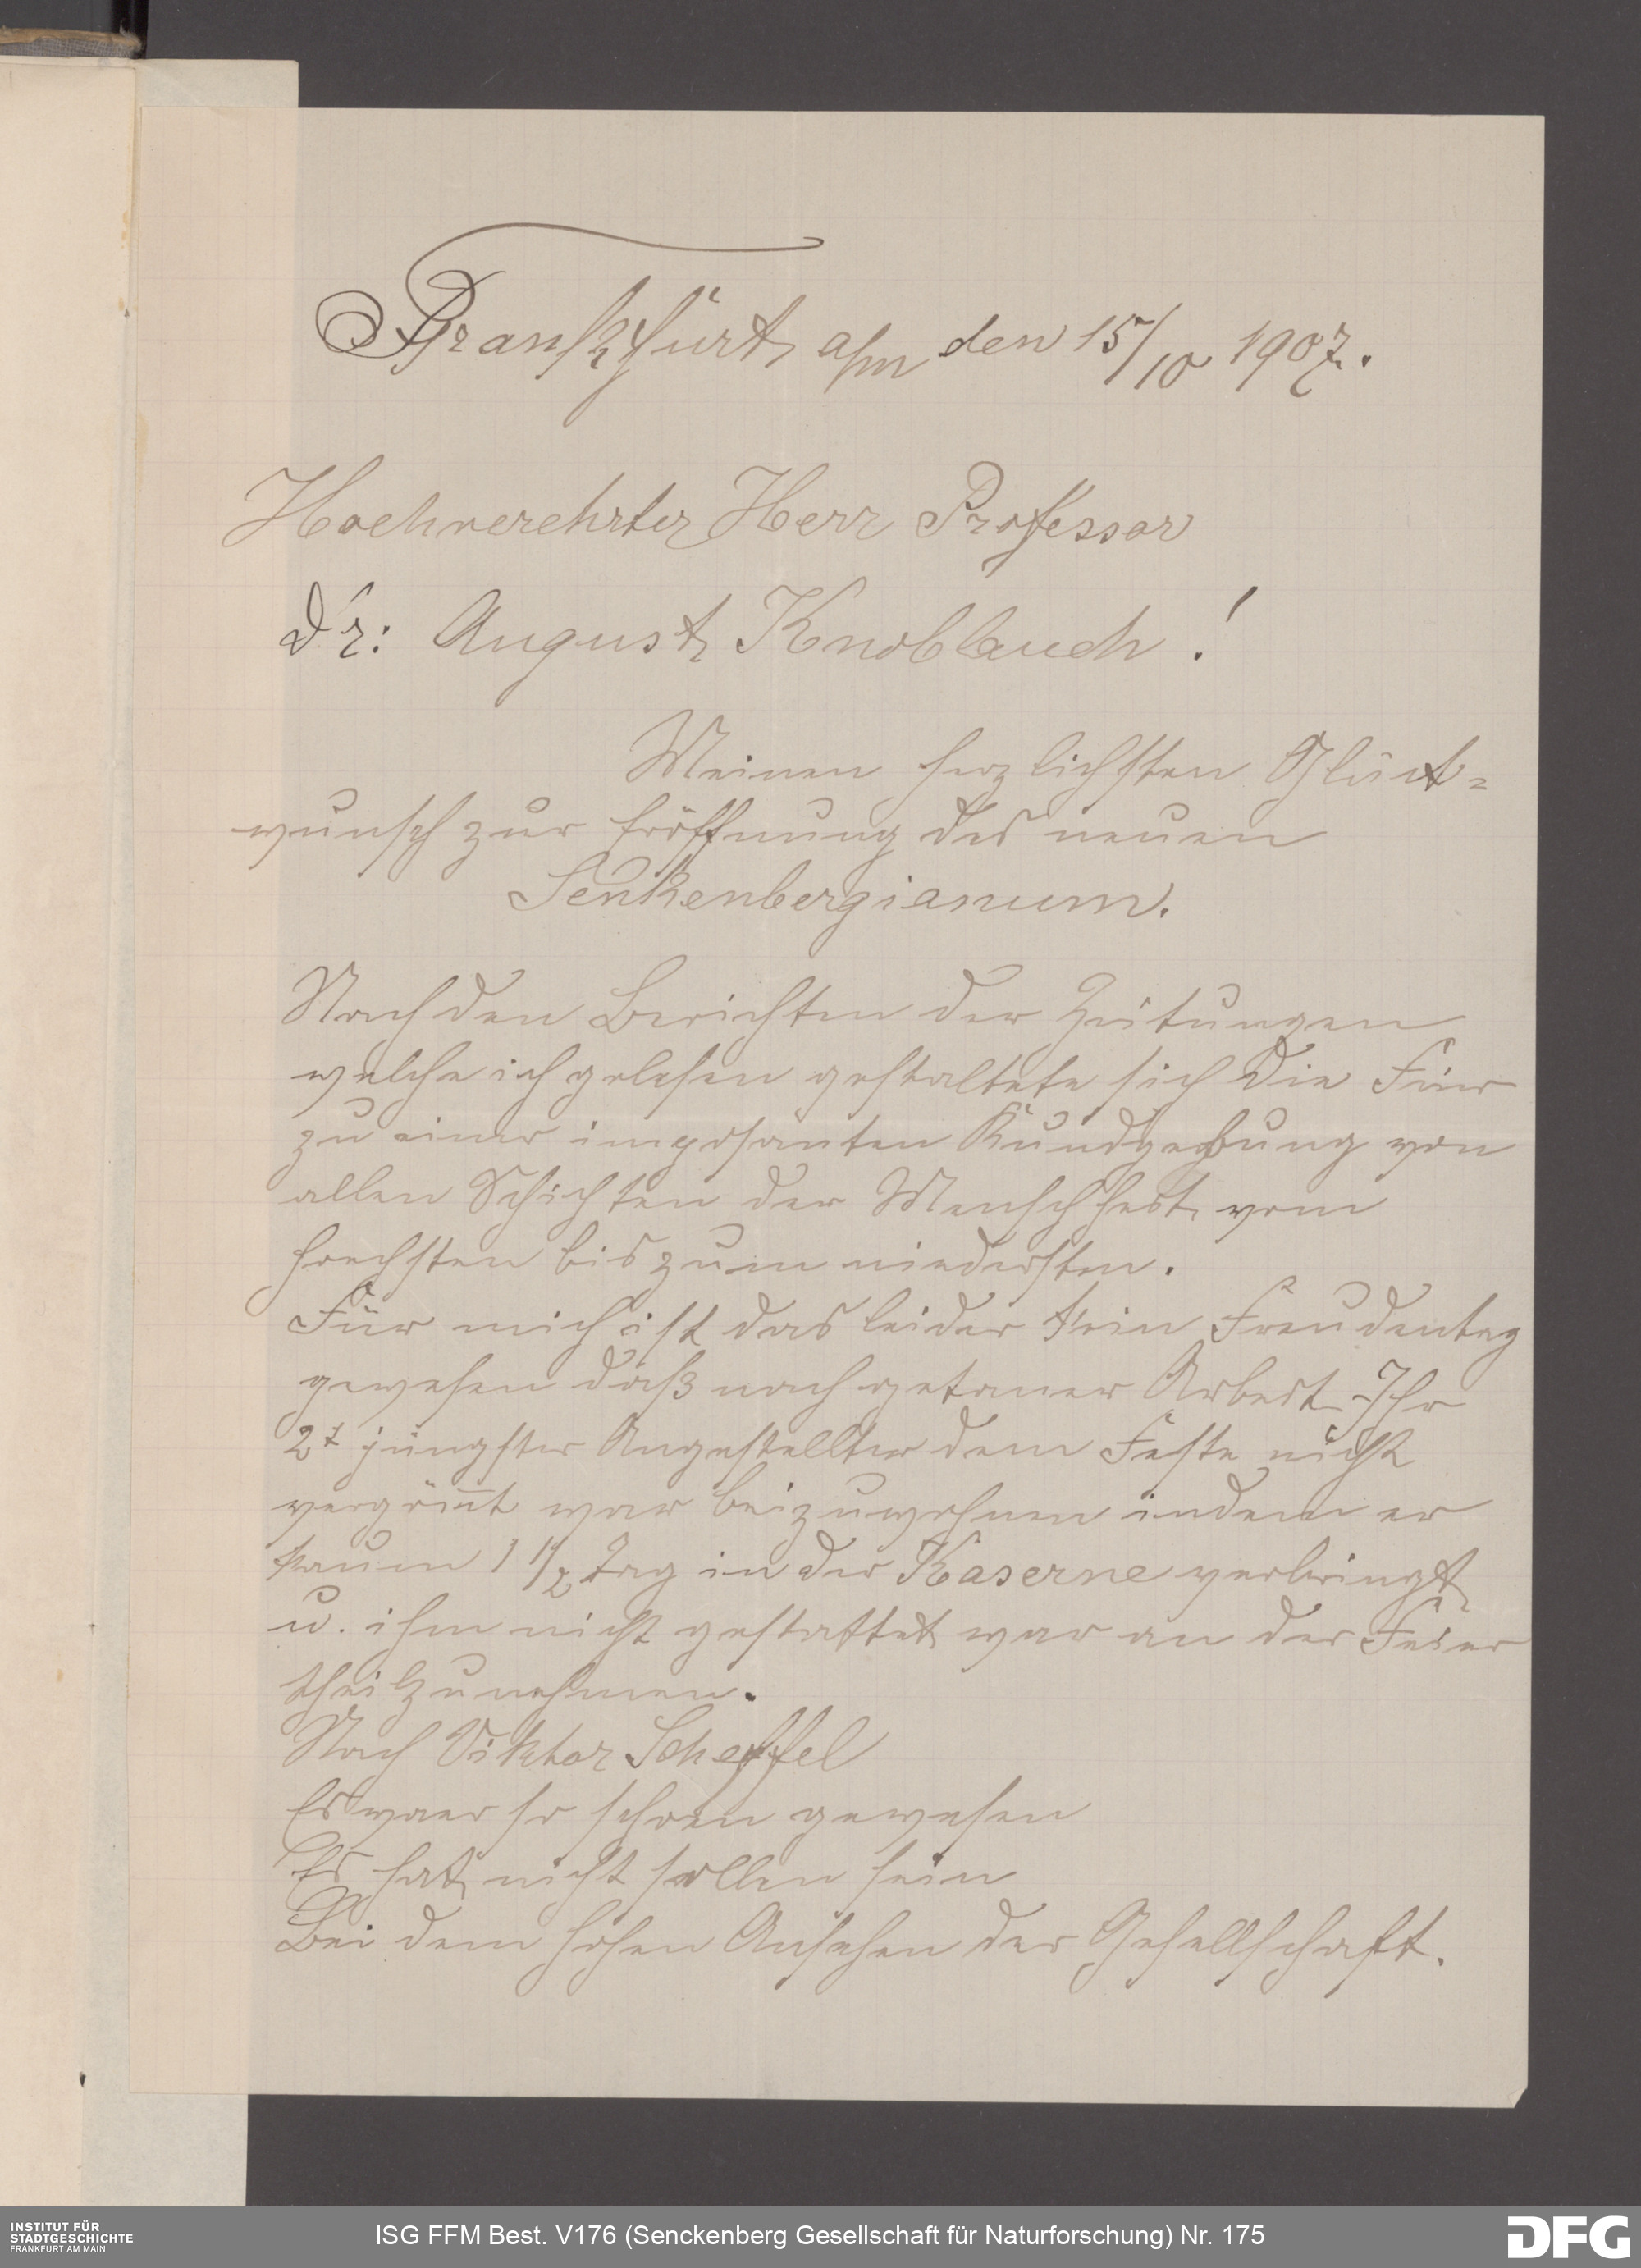 Frankfurt a/m den 15/10 1907.
Hochverehrter Herr Professor
Dr: August Knoblauch!
Meinen herzlichsten Glück=
wunsch zur Eröffnung des neuen
Senkenbergianum.
Nach den Berichten der Zeitungen
welche ich gelesen gestaltete sich die Feier
zu einer imposanten Kundgebung von
allen Schichten der Menschheit vom
hoechsten bis zum niedersten.
Für mich ist das leider kein Freudentag
gewesen daß nach getaner Arbeit Ihr
2t jüngster Angestellter dem Feste nicht
vergönnt war beizuwohnen indem er
kaum 1 1/2 Tag in der Kaserne verbringt
u. ihm nicht gestattet war an der Feier
theilzunehmen.
Nach Viktor Scheffel
Es waer so schoen gewesen
Es hat nicht sollen sein
Bei dem hohen Ansehen der Gesellschaft.
INSTITUT FÜR
STADTGESCHICHTE
FRANKFURT AM MAIN
ISG FFM Best. V176 (Senckenberg Gesellschaft für Naturforschung) Nr. 175
DFG